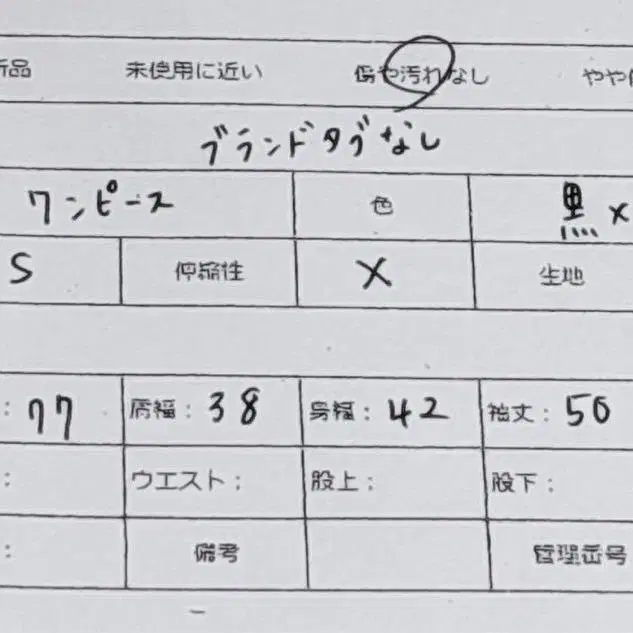 新品 未使用に近い 傷や汚れなし やや
ブランドタグなし
ワンピース 色 黒×
S 伸縮性 × 生地
: 77 肩幅: 38 身幅: 42 袖丈: 50
: ウエスト: 股上: 股下:
: 備考 管理番号